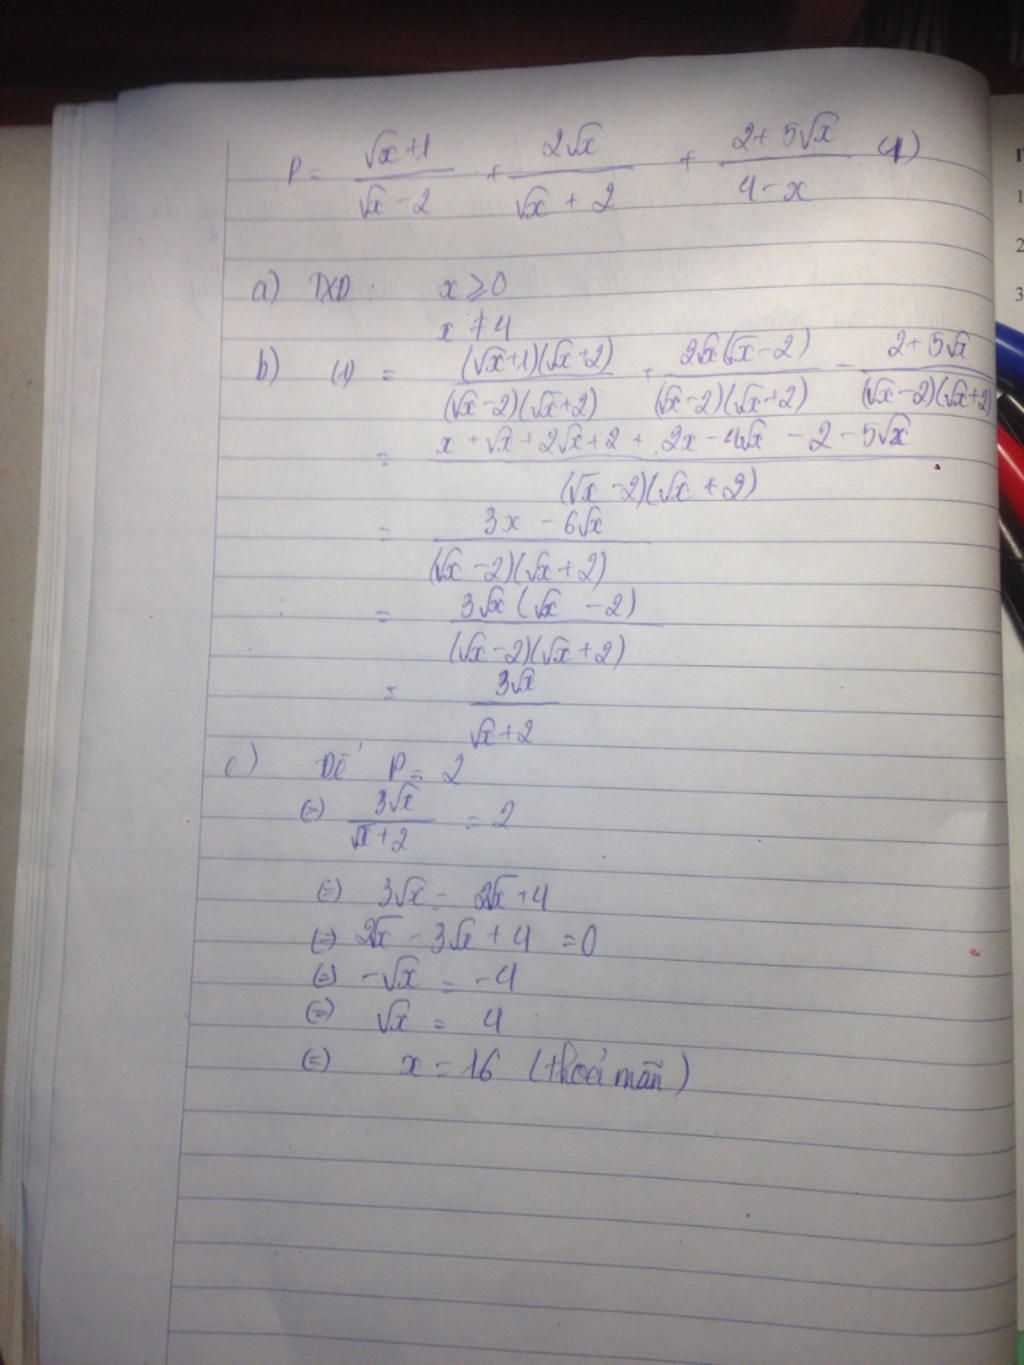 P = (√x+1)/(√x-2) + 2√x/(√x+2) + (2+5√x)/(4-x) (1)
a) TXD : x ≥ 0
x ≠ 4
b) (1) = (√x+1)(√x+2)/(√x-2)(√x+2) + 2√x(√x-2)/(√x-2)(√x+2) - (2+5√x)/(√x-2)(√x+2)
= (x+√x+2√x+2+2x-4√x-2-5√x)/(√x-2)(√x+2)
= (3x-6√x)/(√x-2)(√x+2)
= 3√x(√x-2)/(√x-2)(√x+2)
= 3√x/(√x+2)
c) Để P = 2
(=) 3√x/(√x+2) = 2
(=) 3√x = 2√x+4
(=) 2√x - 3√x + 4 = 0
(=) -√x = -4
(=) √x = 4
(=) x = 16 (thoả mãn)
1
2
3